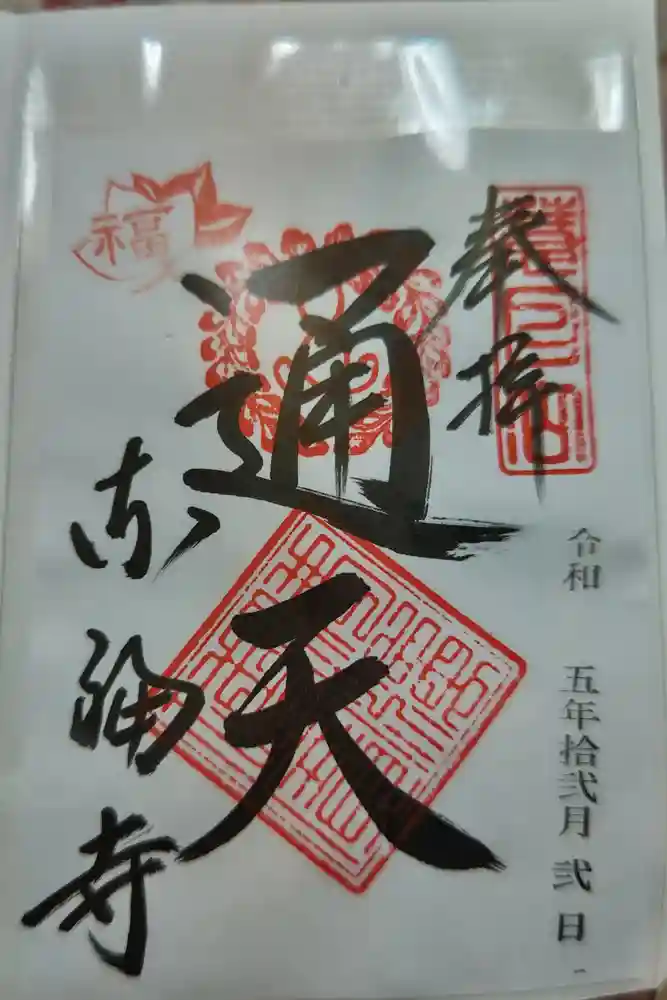 奉拝
令和 五年拾弐月 弐日
通天
福
東福寺